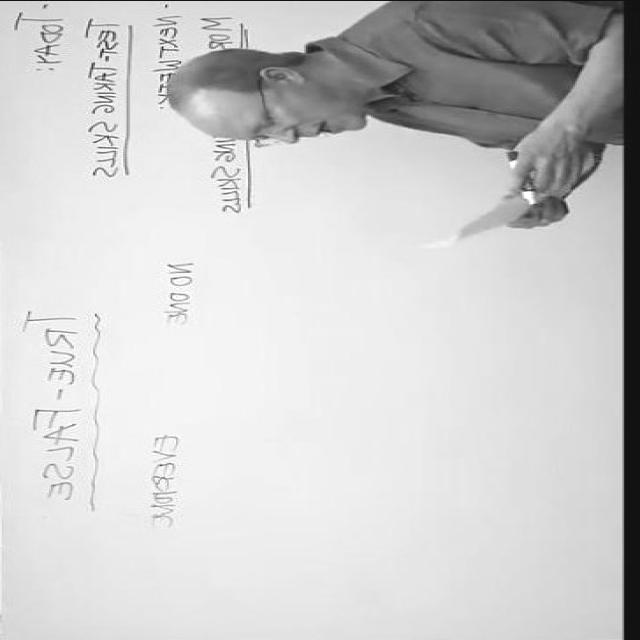 · TODAY:
TEST-TAKING SKILLS
· NEXT WEEK:
SKILLS
TRUE-FALSE
NO ONE
EVERYONE